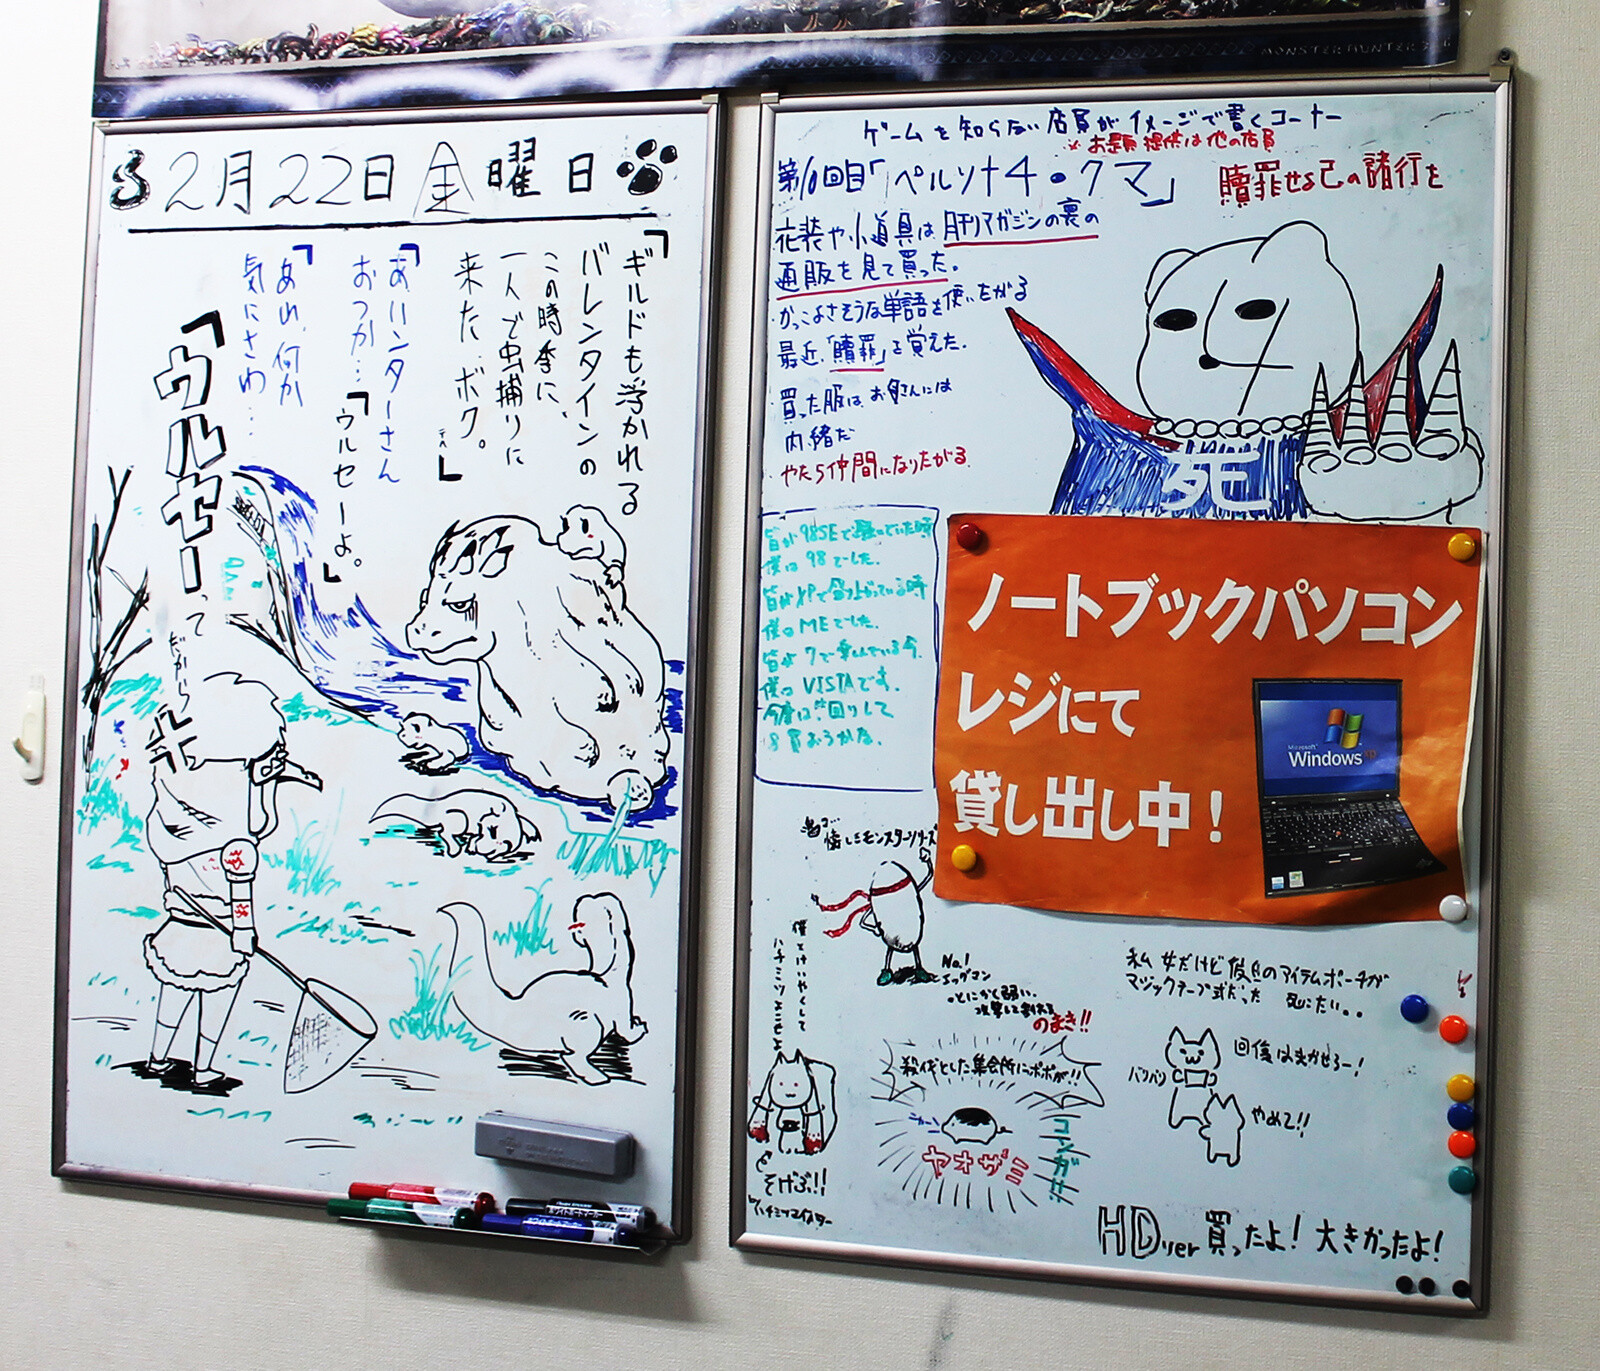 MONSTER HUNTER 3
2月22日 金曜日
「ギルドも浮かれる
バレンタインの
この時季に、
一人で虫捕りに
来た、ボク。
テヘ」
「あ、ハンターさん
おつか…
「ウルセーよ。」
「あれ、何か
気にさわ…
「ウルセーって
だから
ゲームを知らない店員がイメージで書くコーナー
※お題提供は他の店員
第10回目「ペルソナ4・クマ」
贖罪せる己の諸行を
衣装や小道具は月刊マガジンの裏の
通販を見て買った。
かっこよさそうな単語を使いたがる
最近、「贖罪」を覚えた。
買った服は、お母さんには
内緒だ
やたら仲間になりたがる
死
皆が98SEで騒いでいた時
僕は98でした。
皆がXPで盛り上がっている時
僕はMEでした。
皆が7で楽しんでいる今、
僕はVISTAです。
8買おうかな。
ノートブックパソコン
レジにて
貸し出し中！
Microsoft
Windows xp
懐しモンスターシリーズ
No.1
エッグマン
・とにかく弱い。
のまき!!
僕とけいやくして
ハチミツよこせよ
そげぶ!!
byハチミツマイスター
殺伐とした集会所にポポが!!
ヤオザミ
コンガ!!
私 女だけど彼氏のアイテムポーチが
マジックテープ式だった 死にたい。。
回復は まかせろー!
バリバリ
やめて!!
HDver 買ったよ! 大きかったよ!